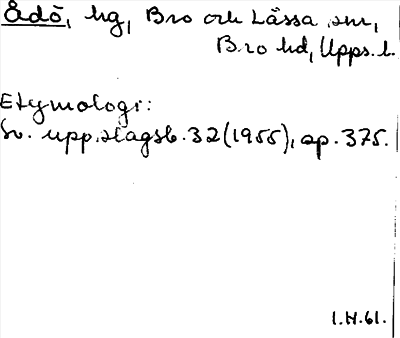 Ådö, hg, Bro och Låssa snr,
Bro hd, Upps. l.
Etymologi:
Sv. upp.slagsb. 32 (1955), sp. 375.
I.H.61.